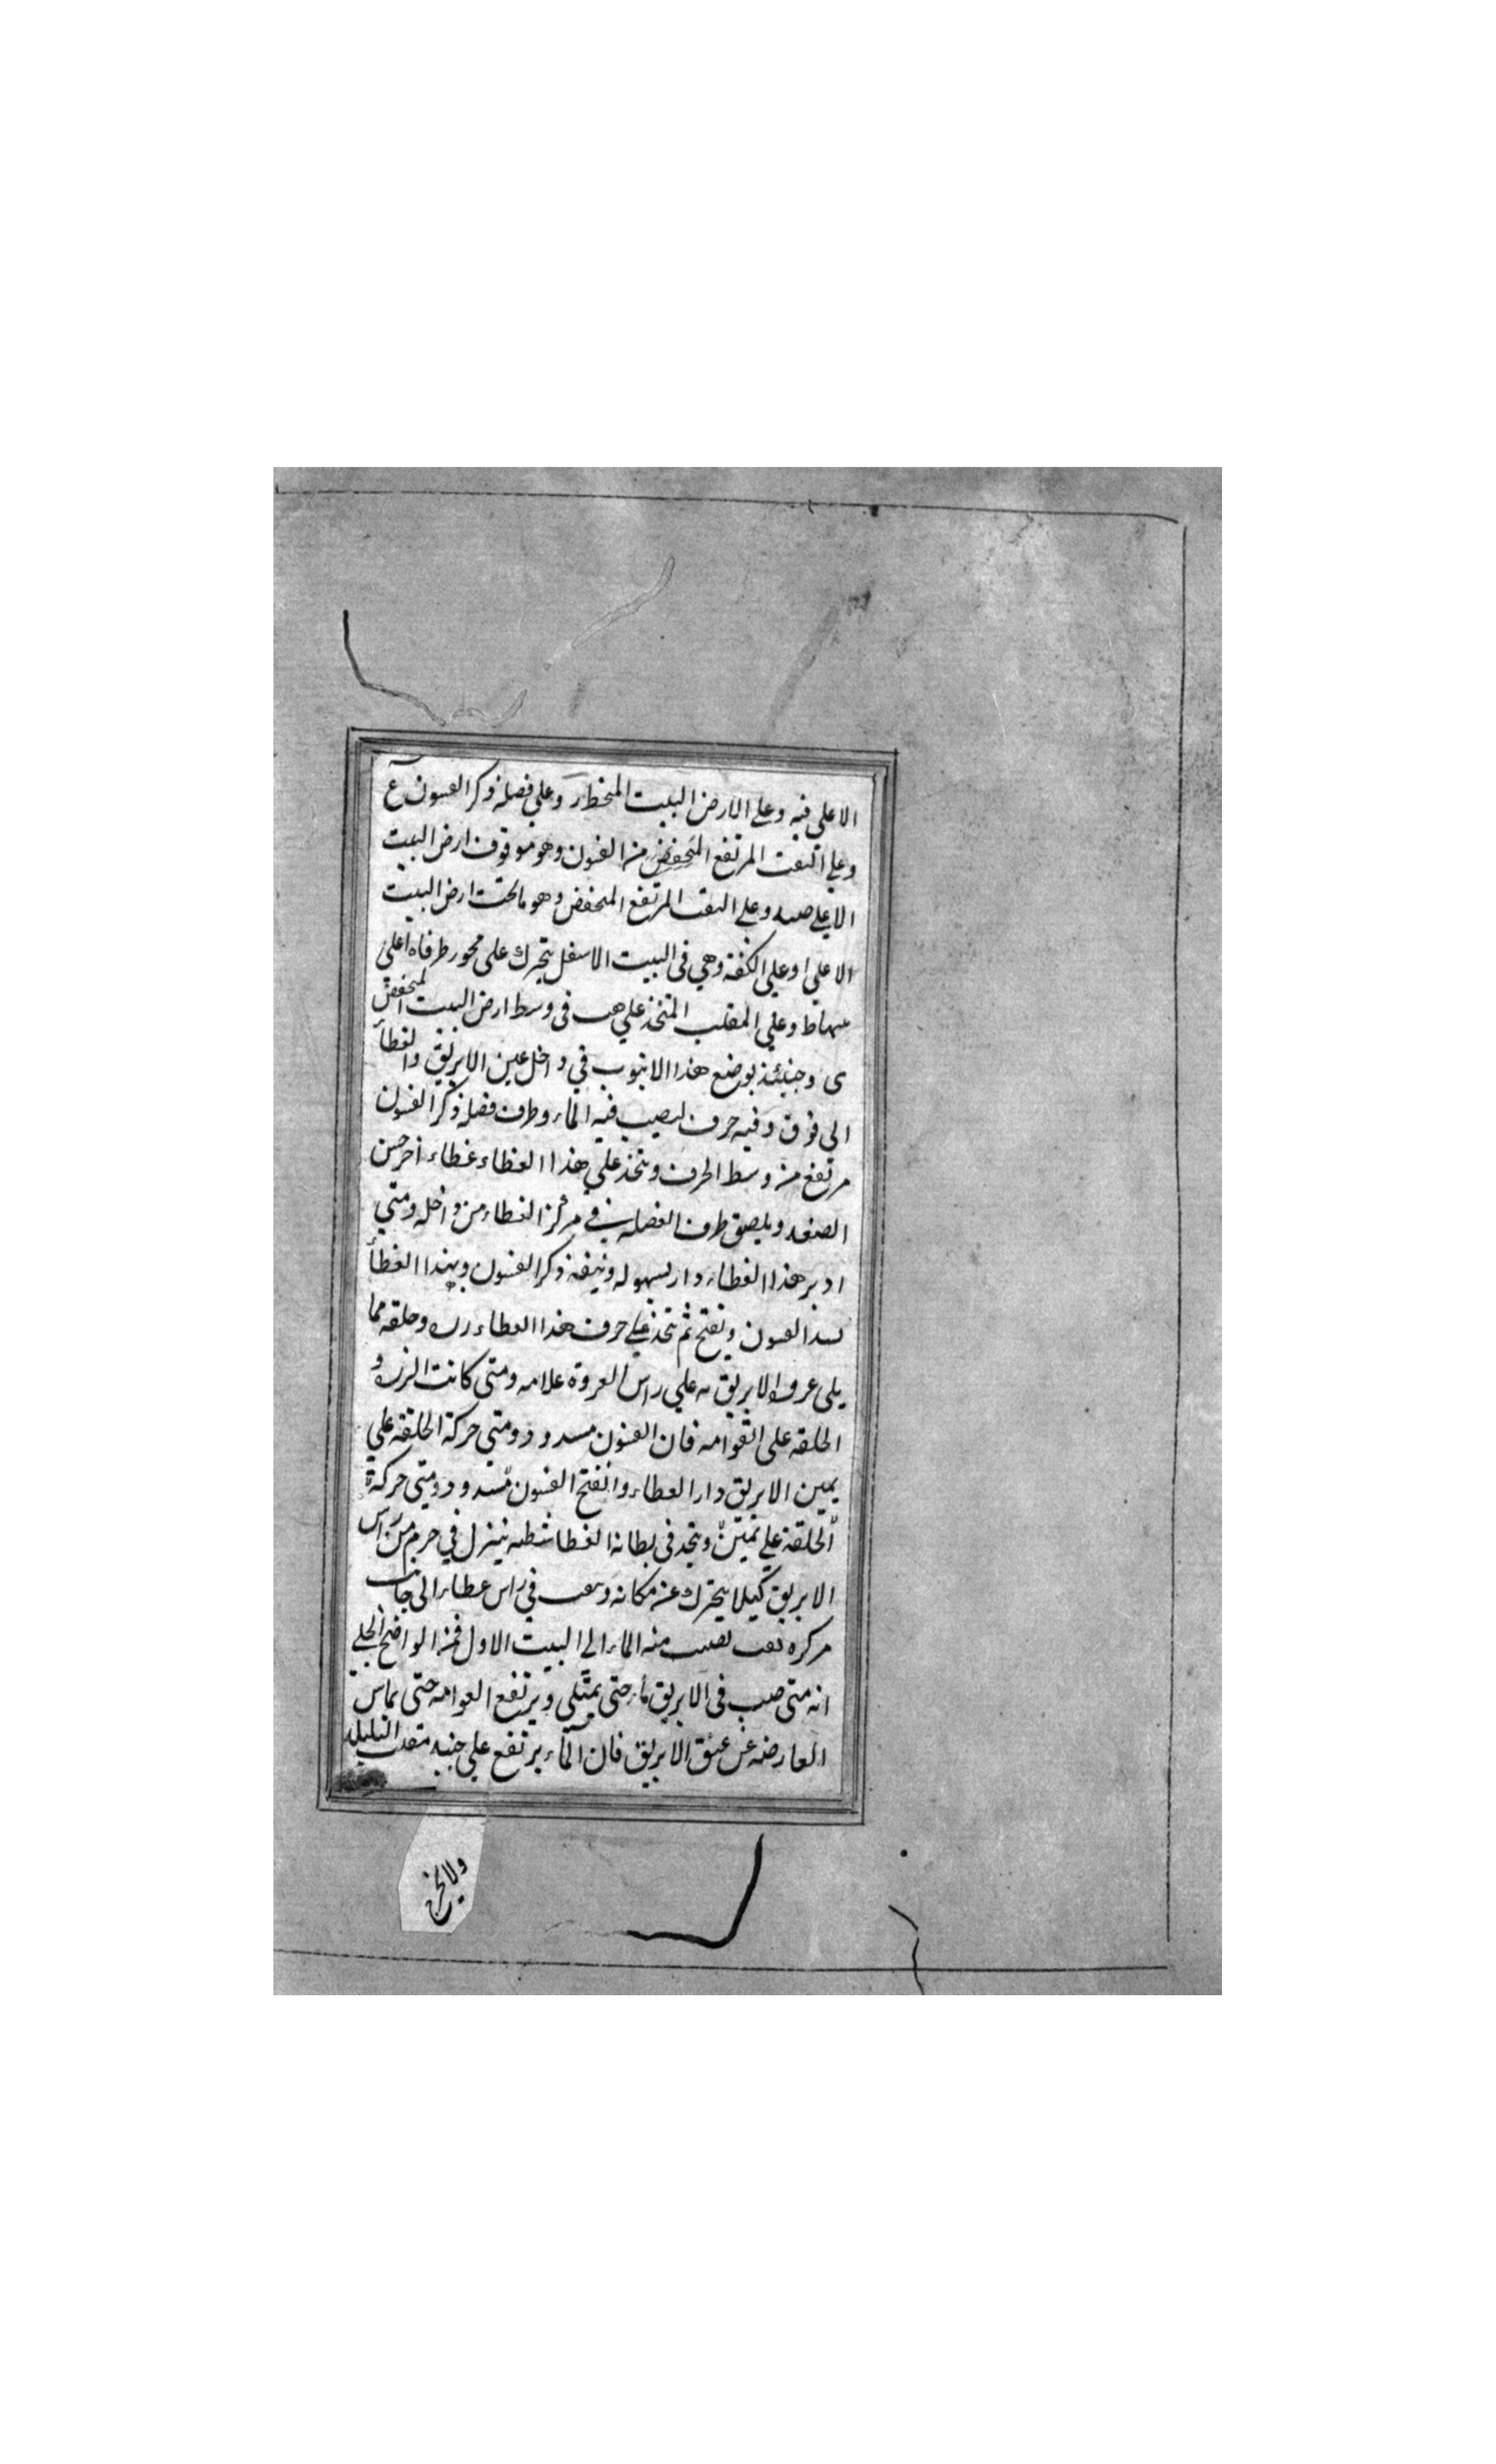 الاعلي فيه و علي الارض البيت المنخطر و علي فضله ذكر الفسون ع
و علي الثقب المرتفع المنخفض من الفسون وهو موقوف ارض البيت
الاعلي صه و علي الثقب المرتفع المنخفض وهو ما تحت ارض البيت
الاعلي ا و علي الكفة وهي في البيت الاسفل يتحرك على محور طرفاه اعلى
علهما ط و علي المقلب المتخذ علي هب في وسط ارض البيت المنخفض
ى و حينئذ يوضع هذا الانبوب في داخل عين الابريق والغطاء
الى فوق وفيه حرف ليصب فيه الماء وطرف فضله ذكر الفسون
مرتفع من وسط الحرف ويتخذ علي هذا الغطاء غطاء اخر حسن
الصنعه ويلصق طرف الفضله في مركز الغطاء من داخله ومتي
ادير هذا الغطاء دار بسهوله ونيفه ذكر الفسون وبهذا الغطاء
يسد الفسون ويفتح ثم يتخذ علي حرف هذا الغطاء زره وحلقه مما
يلى عروه الابريق ه علي راس العروة علامه ومتى كانت الزره و
الحلقه على القوامه فان الفسون مسدود ومتي حركة الحلقه علي
يمين الابريق دار الغطاء وانفتح الفسون مسدود ومتي حركة
الحلقة علي يمين ويتخذ في بطانة الغطا شظيه ينزل في حرم من راس
الابريق كيلا يتحرك عن مكانه وثقب في راس غطاء الى جانب
مركزه ثقب يصب منه الماء الي البيت الاول فمن الواضح الجلي
انه متى صب في الابريق ماء حتى يمتلي ويرتفع العوامه حتى يماس
العارضه عن عنق الابريق فان الماء يرتفع علي جنبه مقدار القليل
ولايخرج